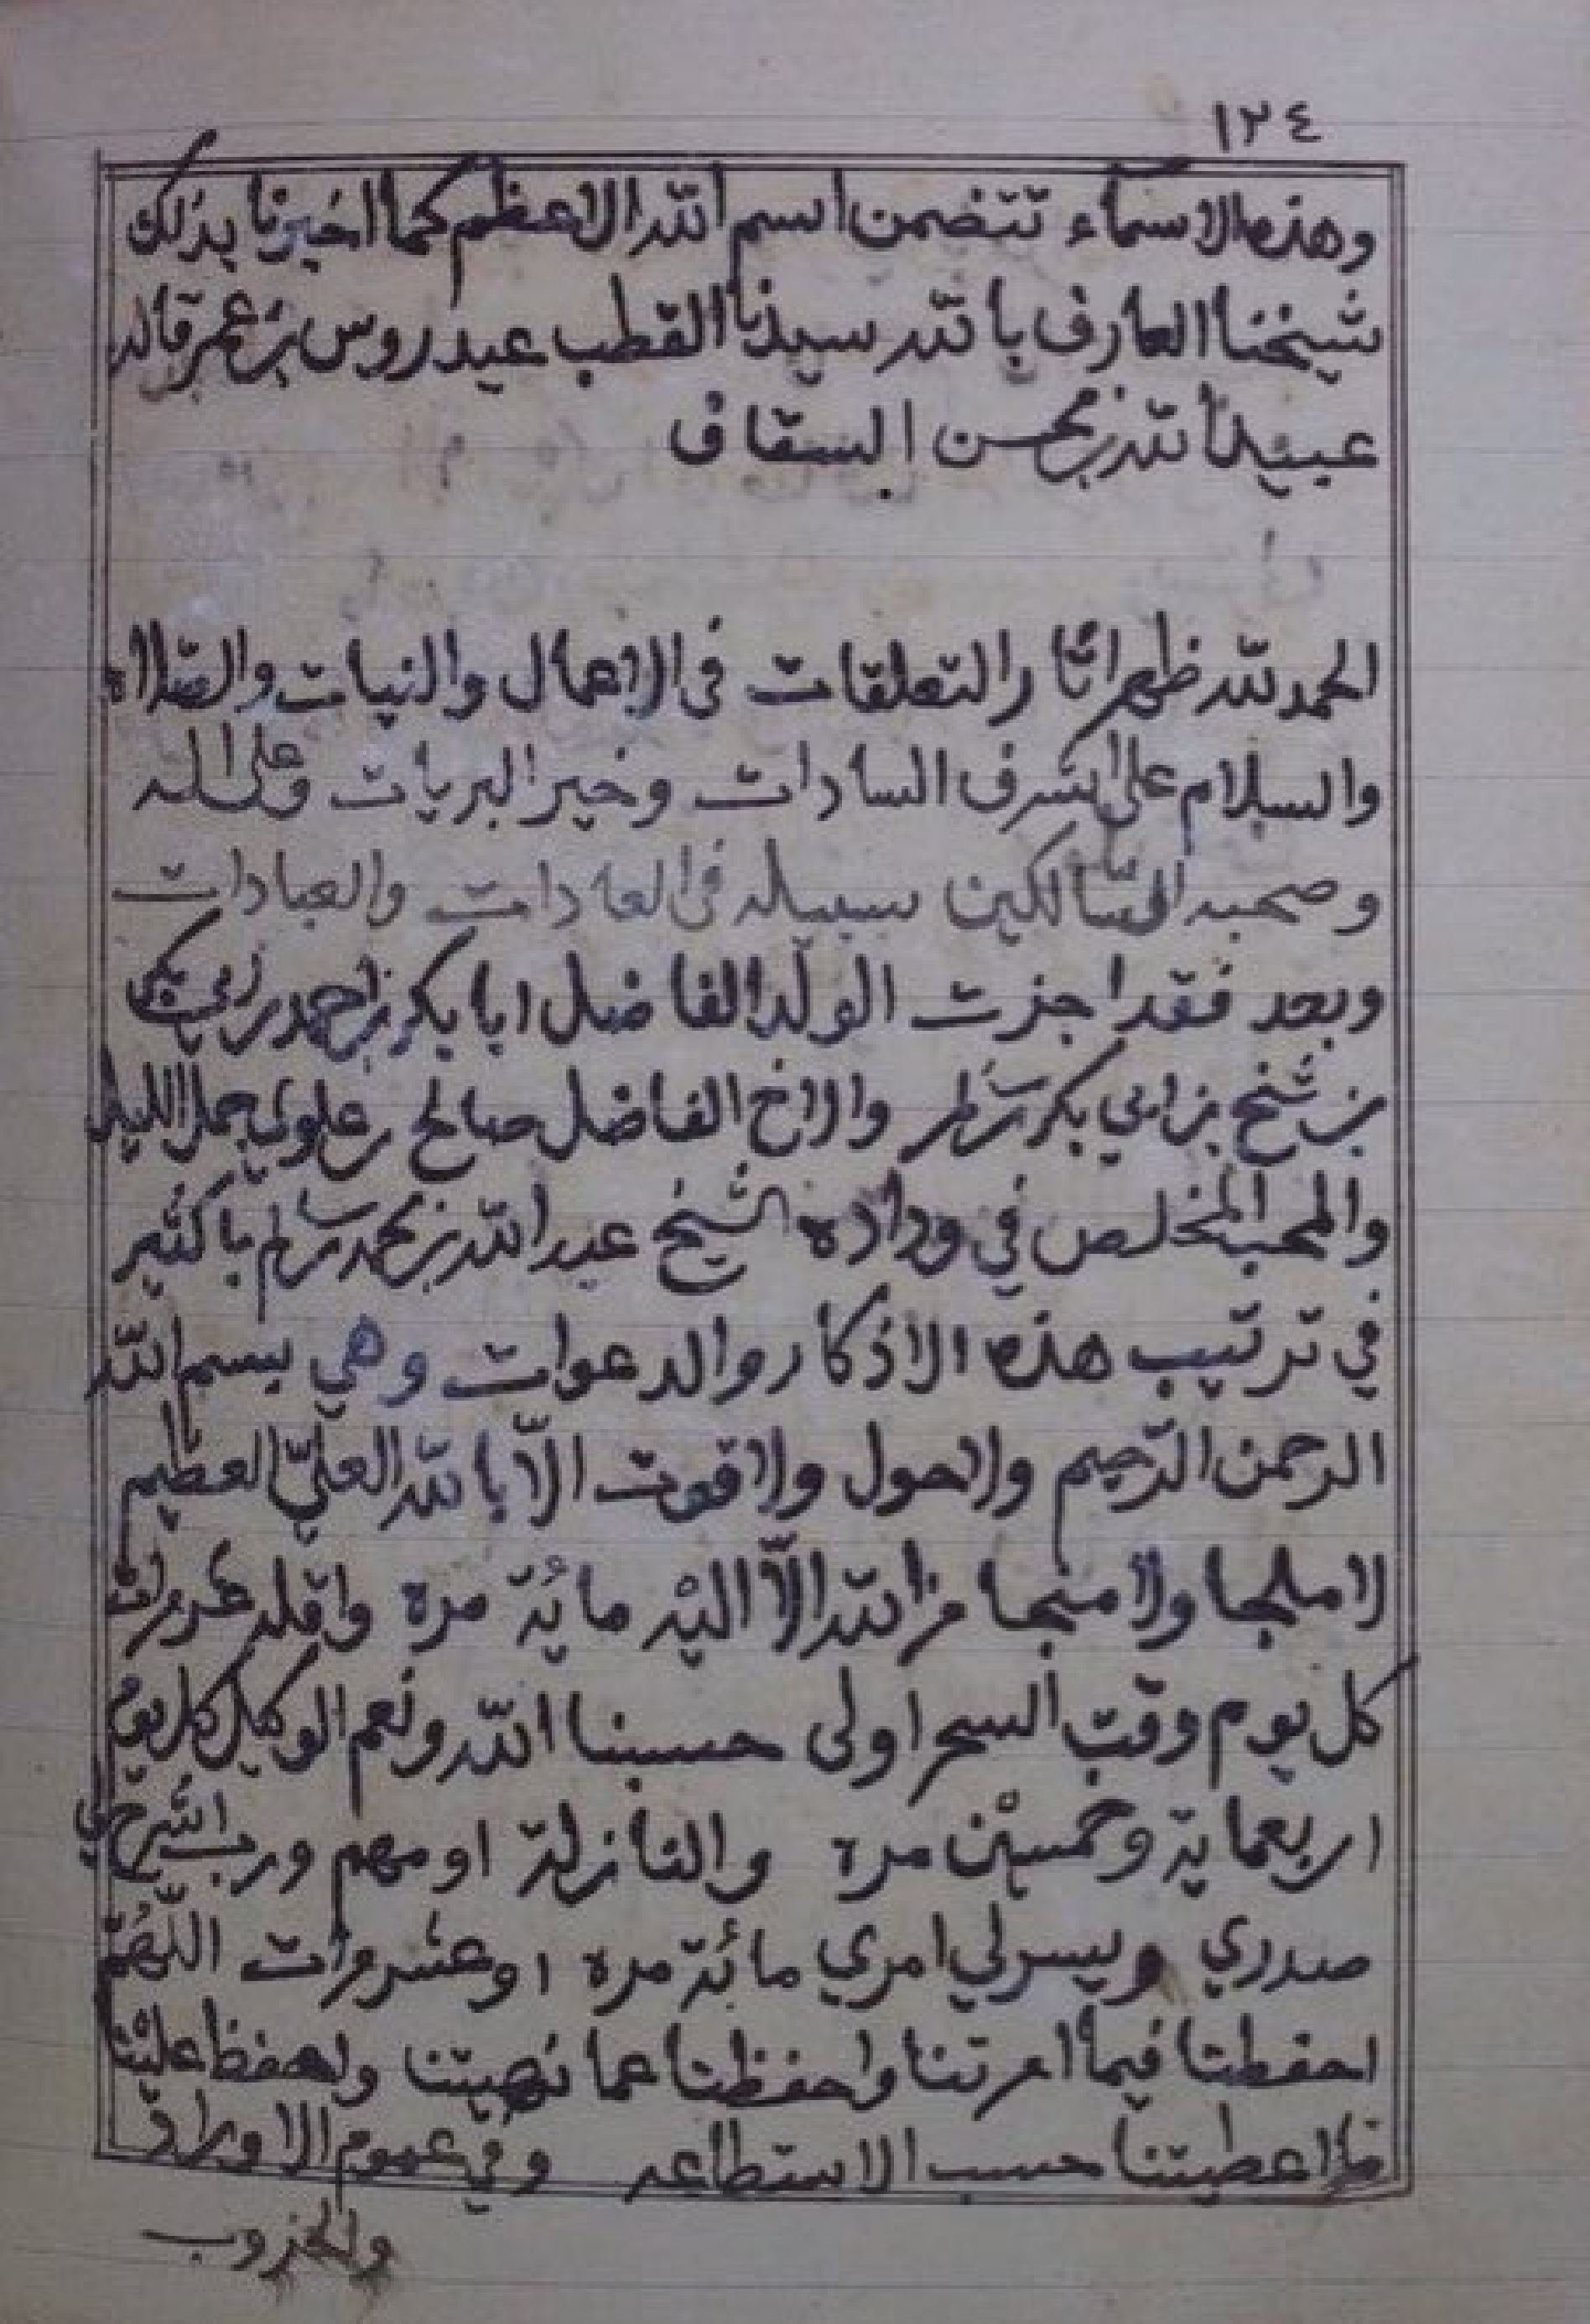 ١٢٤
وهذه الاسماء تتضمن اسم الله الاعظم كما اخبرنا بذلك
شيخنا العارف بالله سيدنا القطب عيدروس بن عمر قاله
عبيد الله بن محسن السقاف
الحمد لله ظهر اثار التعلقات في الاعمال والنيات والصلاة
والسلام على اشرف السادات وخير البريات وعلى اله
وصحبه السالكين سبيله في العادات والعبادات
وبعد فقد اجزت الولد الفاضل ابا بكر بن احمد بن ابي بكر
بن شيخ بن ابي بكر بن سالم والاخ الفاضل صالح بن علوي جمل الليل
والمحب المخلص في وداده الشيخ عبد الله بن محمد بن سالم باكثير
في ترتيب هذه الاذكار والدعوات وهي بسم الله
الرحمن الرحيم ولا حول ولا قوت الّا بالله العليّ العظيم
لا ملجا ولا منجا من الله الّا اليْه مائة مرة واقله عشر مرات
كل يوم وقت السحر اولى حسبنا الله ونعم الوكيل كل يوم
اربعماية وخمسين مرة والنازلة او مهم ورب اشرح لي
صدري ويسر لي امري مائة مرة او عشر مرات اللّهُمّ
احفظنا فيما امرتنا واحفظنا عما نهيتنا واحفظ علينا
ما اعطيتنا حسب الاستطاعه وفي عموم الاوراد
والحزوب